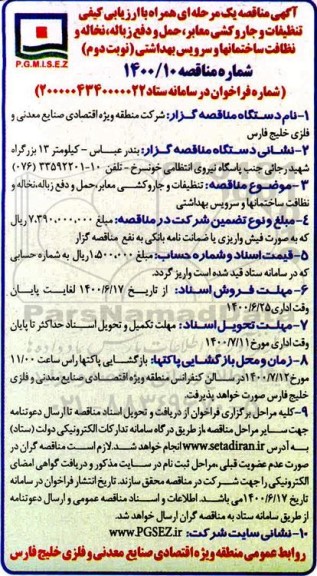 آگهی مناقصه یک مرحله ای همراه با ارزیابی کیفی
تنظیفات و جاروکشی معابر، حمل و دفع زباله، نخاله و
نظافت ساختمانها و سرویس بهداشتی (نوبت دوم)
P.G.M.I.S.E.Z
شماره مناقصه ۱۴۰۰/۱۰
(شماره فراخوان در سامانه ستاد ۲۰۰۰۰۰۴۳۴۰۰۰۰۰۲۲)
۱-نام دستگاه مناقصه گزار: شرکت منطقه ویژه اقتصادی صنایع معدنی و
فلزی خلیج فارس
۲-نشانی دستگاه مناقصه گزار: بندرعباس - کیلومتر ۱۳ بزرگراه
شهید رجائی جنب پاسگاه نیروی انتظامی خونسرخ - تلفن ۱۰-۳۳۵۹۲۲۰۱ (۰۷۶)
۳-موضوع مناقصه: تنظیفات و جاروکشی معابر، حمل و دفع زباله، نخاله و
نظافت ساختمانها و سرویس بهداشتی
۴-مبلغ و نوع تضمین شرکت در مناقصه: مبلغ ۷.۳۹۰.۰۰۰.۰۰۰ ریال
که به صورت فیش واریزی یا ضمانت نامه بانکی به نفع مناقصه گزار
۵-قیمت اسناد و شماره حساب: مبلغ ۱.۵۰۰.۰۰۰ ریال به شماره حسابی
که در سامانه ستاد قید شده است واریز گردد.
۶-مهلت فروش اسناد: از تاریخ ۱۴۰۰/۶/۱۷ لغایت پایان
وقت اداری ۱۴۰۰/۶/۲۵
۷-مهلت تحویل اسناد: مهلت تکمیل و تحویل اسناد حداکثر تا پایان
وقت اداری مورخ ۱۴۰۰/۷/۱۱
۸-زمان و محل بازگشایی پاکتها: بازگشایی پاکتها راس ساعت ۱۱/۰۰
مورخ ۱۴۰۰/۷/۱۲ در سالن کنفرانس منطقه ویژه اقتصادی صنایع معدنی و فلزی
خلیج فارس صورت خواهد پذیرفت.
۹-کلیه مراحل برگزاری فراخوان از دریافت و تحویل اسناد مناقصه تا ارسال دعوتنامه
جهت سایر مراحل مناقصه، از طریق درگاه سامانه تدارکات الکترونیکی دولت (ستاد)
به آدرس www.setadiran.ir انجام خواهد شد. لازم است مناقصه گران در
صورت عدم عضویت قبلی، مراحل ثبت نام در سایت مذکور و دریافت گواهی امضای
الکترونیکی را جهت شرکت در مناقصه محقق سازند. تاریخ انتشار فراخوان در سامانه
تاریخ ۱۴۰۰/۶/۱۷ می باشد. اطلاعات و اسناد مناقصه عمومی و ارسال دعوتنامه
از طریق سامانه ستاد به مناقصه گران ارسال خواهد شد.
۱۰-نشانی سایت شرکت: www.PGSEZ.ir
روابط عمومی منطقه ویژه اقتصادی صنایع معدنی و فلزی خلیج فارس